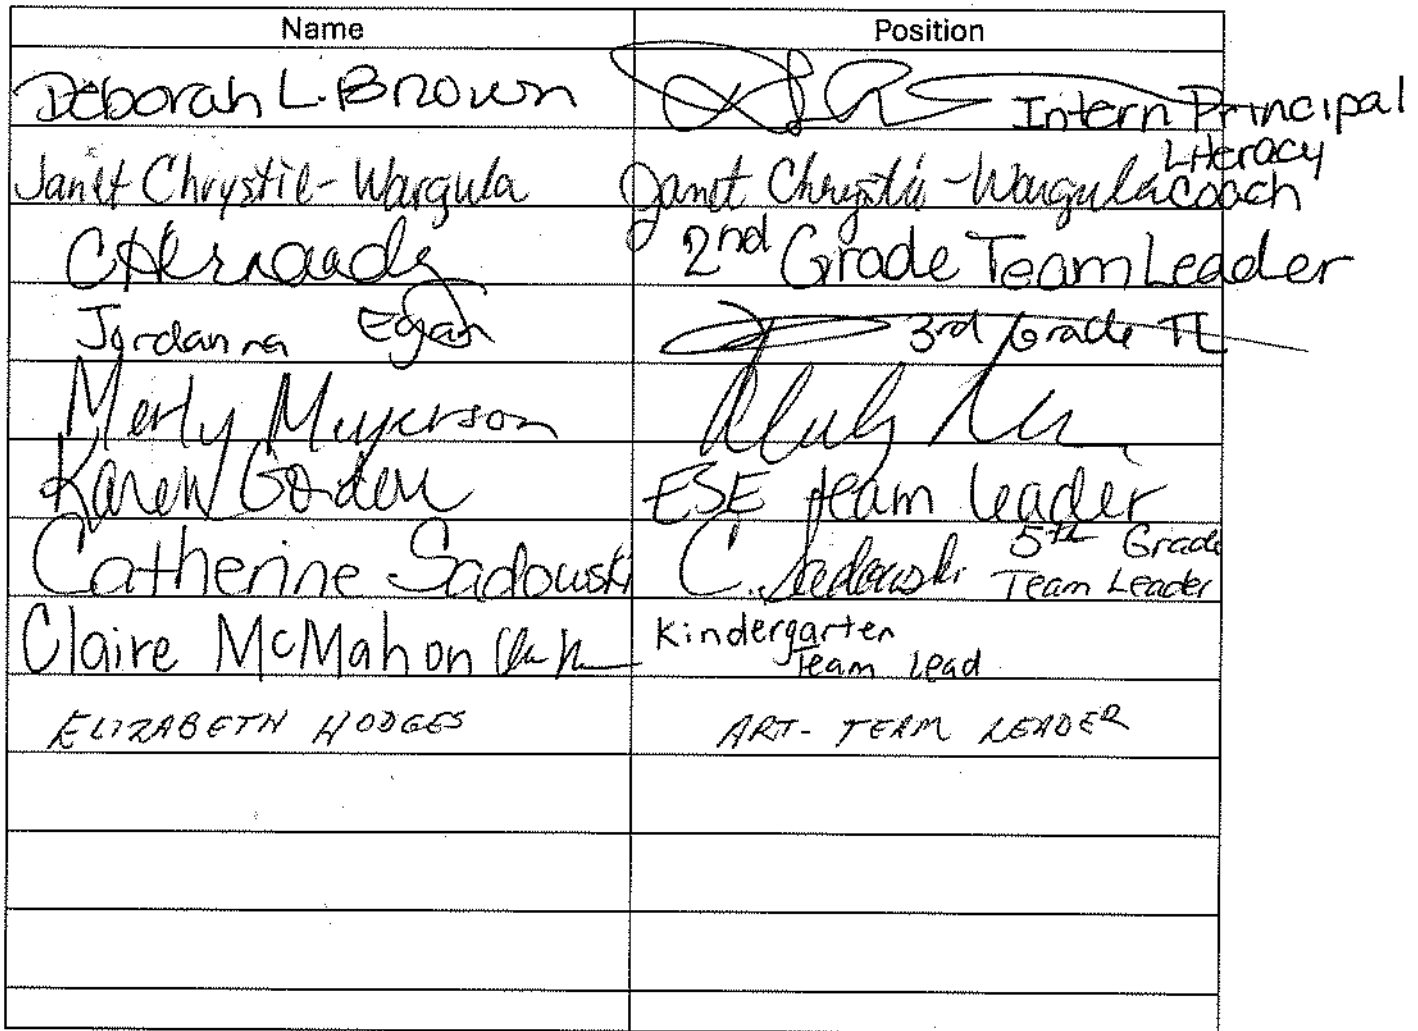 Name Position
Deborah L. Brown Intern Principal
Janet Chrystie-Wargula Janet Chrystie-Wargula Literacy Coach
2nd Grade Team Leader
Jordanna Egan 3rd Grade TL
Merly Meyerson
Karen ESE team leader
Catherine Sadowski C. Sadowski 5th Grade
Team Leader
Claire McMahon Kindergarten
Team Lead
ELIZABETH HODGES ART- TEAM LEADER